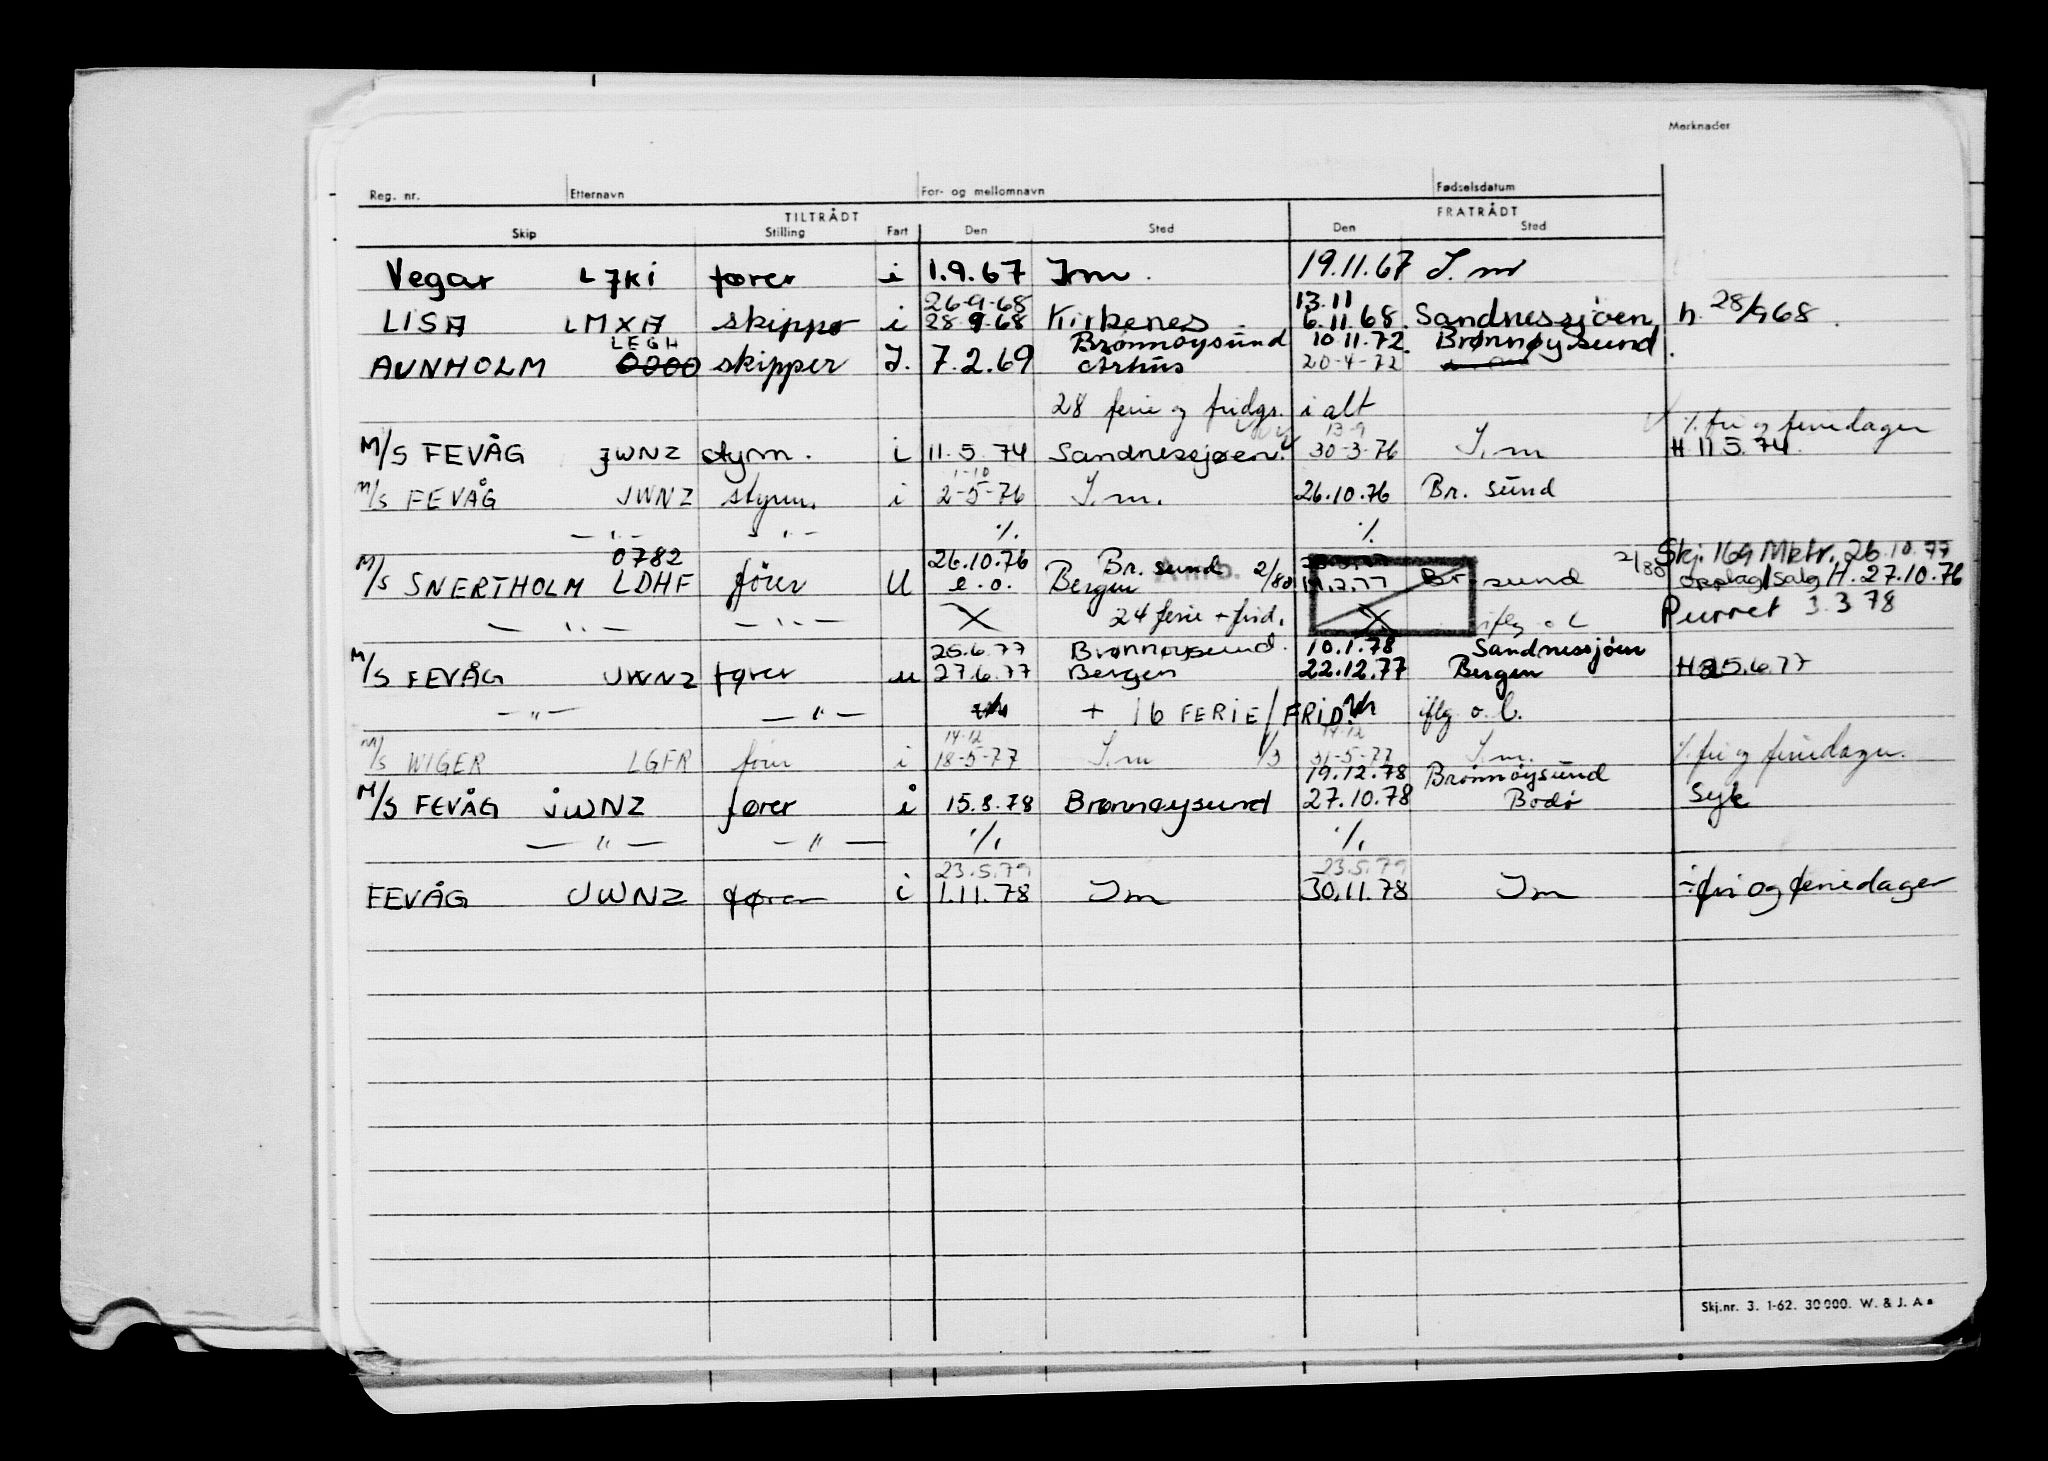 Merknader
Reg. nr. Etternavn For- og mellomnavn Fødselsdatum
TILTRÅDT FRATRÅDT
Skip Stilling Fart Den Sted Den Sted
Vegar LJKI fører i 1.9.67 I m. 19.11.67 I. m
26-9-68 13.11
LISA LMXA skipper i 28.9.68 Kirkenes 6.11.68 Sandnessjøen h. 28/9 68.
LEGH Brønnøysund 10.11.72. Brønnøysund.
AUNHOLM skipper I. 7.2.69 Århus 20-4-72
28 ferie og fridgr. i alt
13-9 % fri og feriedager
M/S FEVÅG JWNZ styrm. i 11.5.74 Sandnessjøen. 30-3-76 I. m H 11 5. 74.
1-10
M/S FEVÅG JWNZ styrm. i 2-5-76 I. m. 26.10.76 Br. sund
— " — " — % %
0782 26.10.76 Br. sund 2/80 Skj. 169 Mktr. 26.10.77
M/S SNERTHOLM LDHF fører U e.o. Bergen 2/80 19.2.77 Br sund opplag/salg H. 27.10.76
— " — — " — X 24 ferie + frid. X iflg o l Purret 3.3 78
25.6.77 Brønnøysund. 10.1.78 Sandnessjøen
M/S FEVÅG JWNZ fører u 27.6.77 Bergen 22.12.77 Bergen H 25.6.77
— " — — " — + 16 FERIE/FRID. iflg o. l.
14-12 14-12
M/S WIGER LGFR fører i 18-5-77 I. m 1/3 31-5-77 I. m. % fri og feriedager.
19.12.78 Brønnøysund
M/S FEVÅG JWNZ fører i 15.8.78 Brønnøysund 27.10.78 Bodø Syk
— " — — " — % %
23.5.79 23.5.79
FEVÅG JWNZ fører i 1.11.78 I m 30.11.78 I m ÷ fri og feriedager
Skj.nr. 3. 1-62. 30 000. W. & J. A s